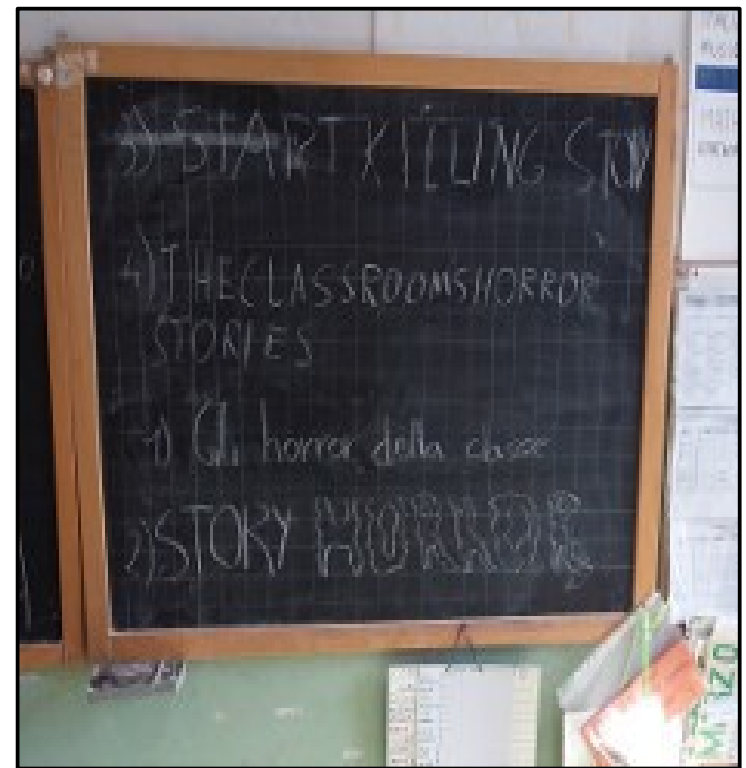 3) START KILLING STORY
4) THECLASSROOMSHORROR
STORIES
1) Gli horror della classe
2) STORY HORROR